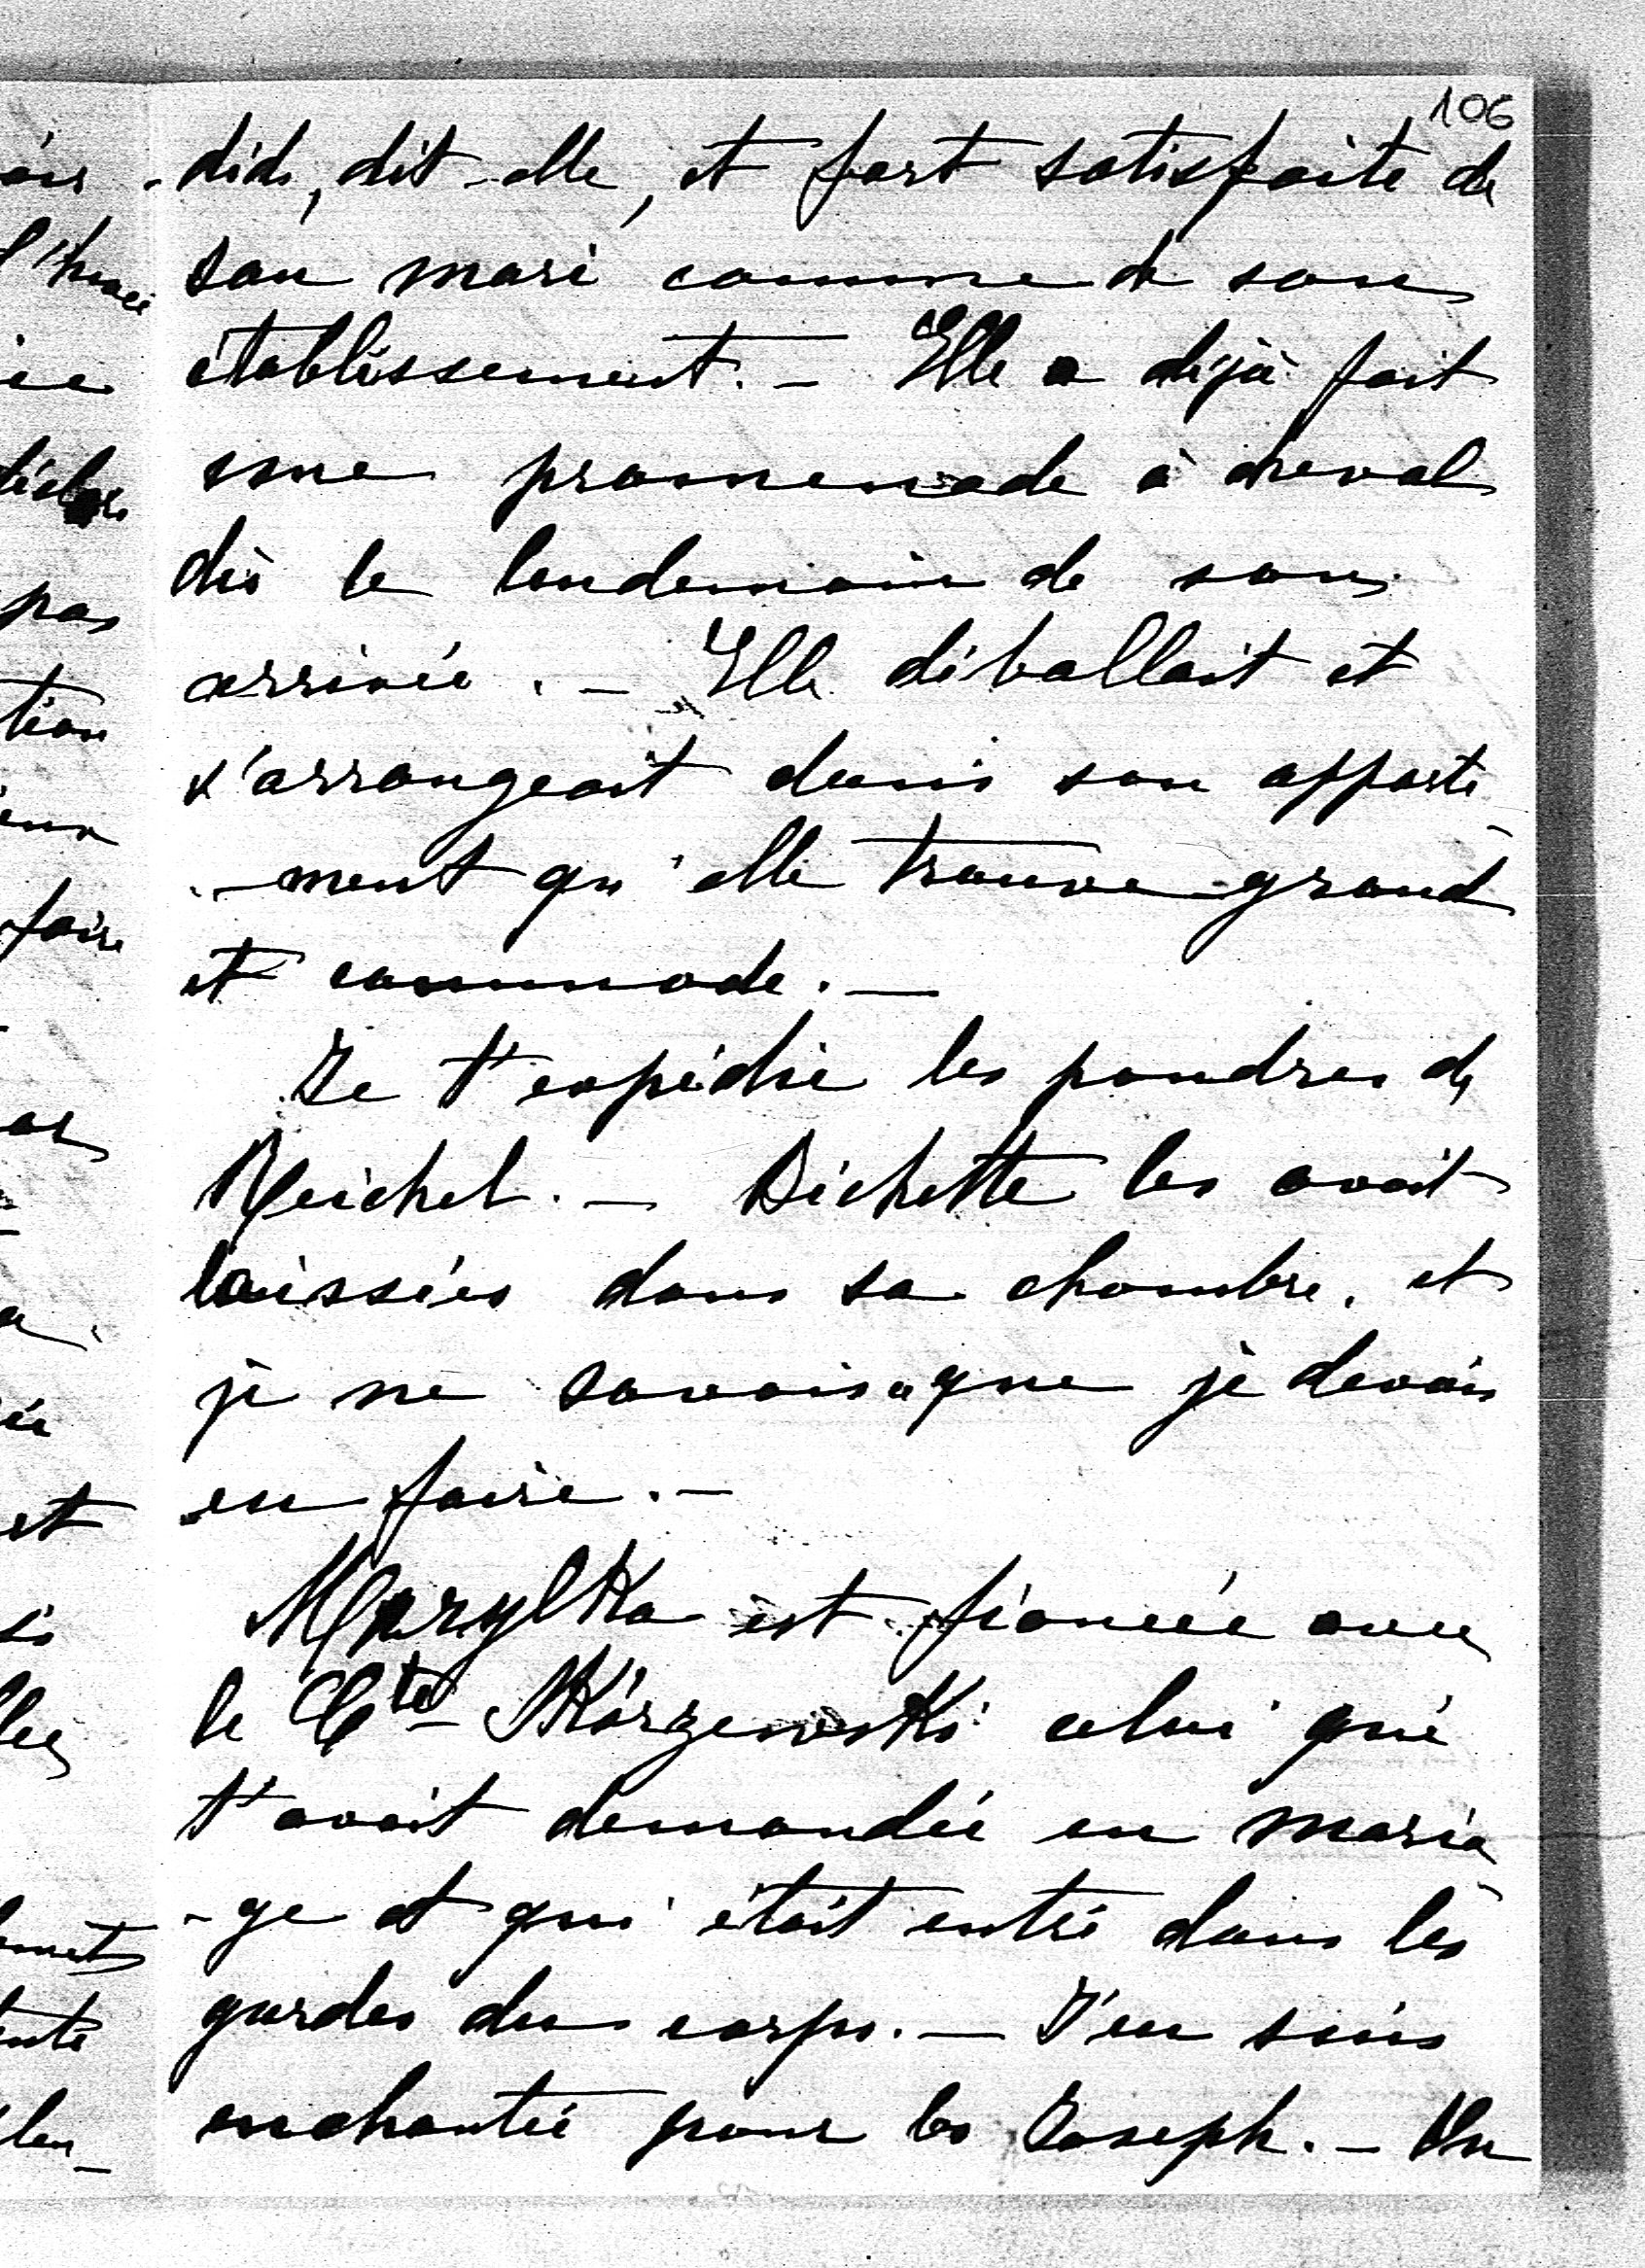 106
-dide, dit-elle, et fort satisfaite de
son mari comme de son
établissement. — Elle a déjà fait
une promenade à cheval
dès le lendemain de son
arrivée. — Elle déballait et
s'arrangeait dans son apparte
-ment qu'elle trouve grand
et commode. —
Je t'expédie les poudres de
Reichel. — Bichette les avait
laissées dans sa chambre, et
je ne savais que je devais
en faire. —
Marylka est fiancée avec
le Cte Skórzewski celui qui
t'avait demandée en maria
-ge et qui était entré dans les
gardes du corps. — J'en suis
enchantée pour les Joseph. — Un